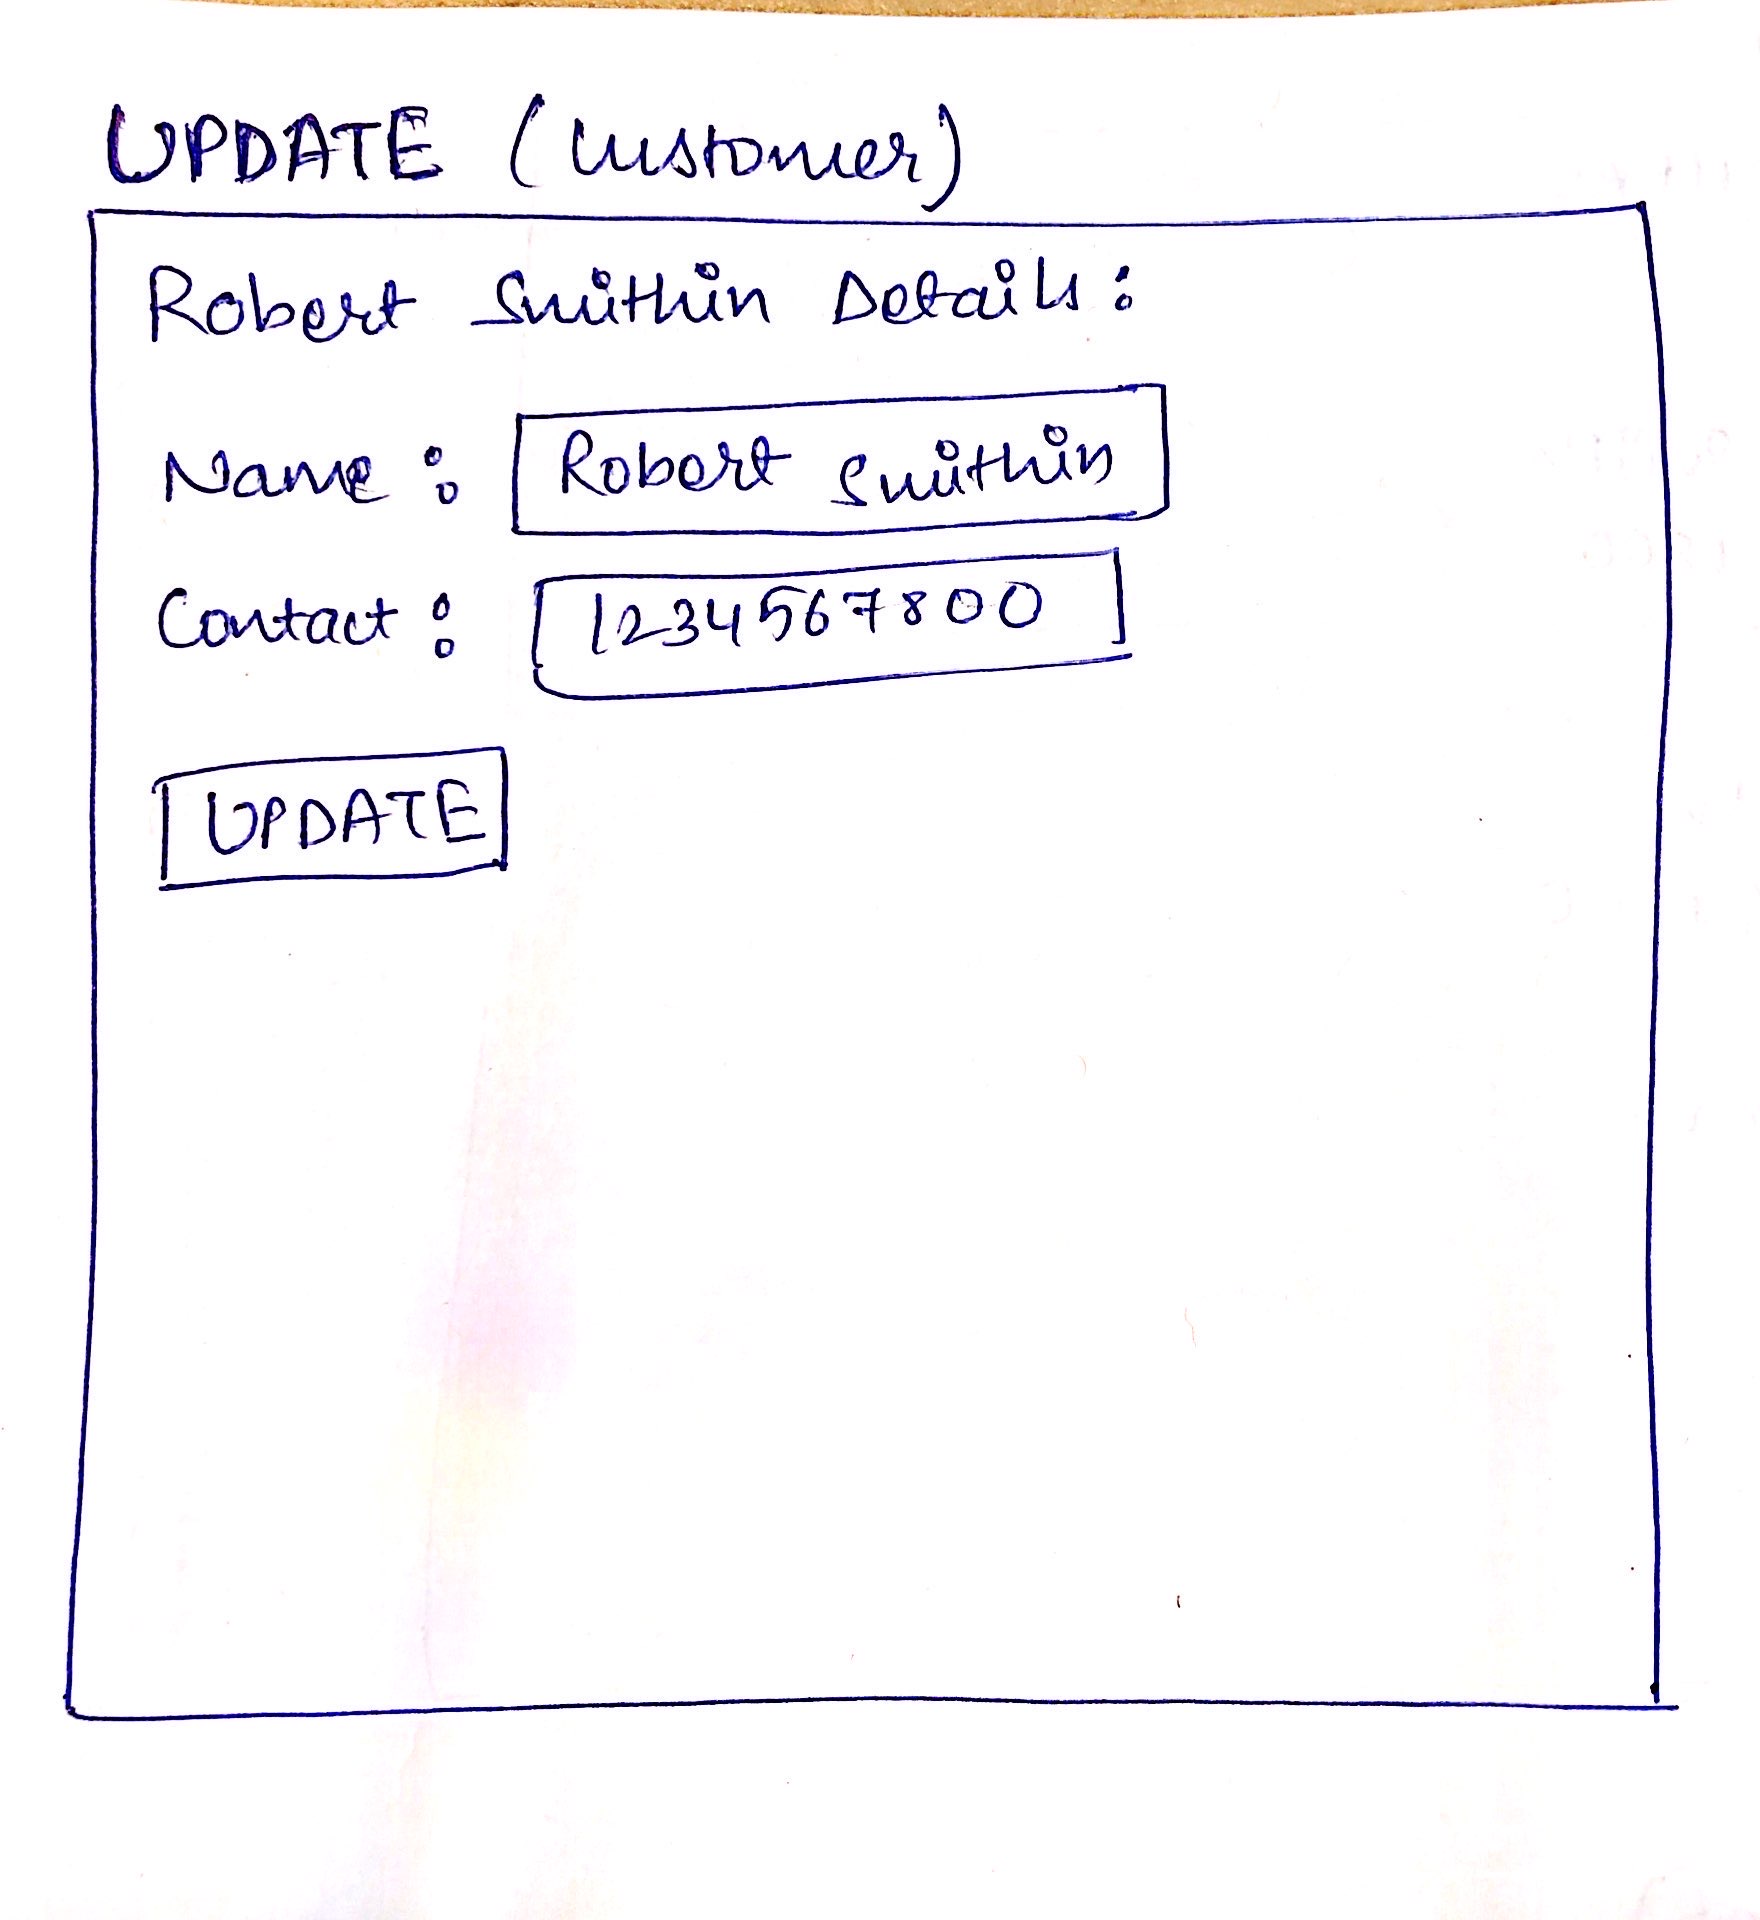 UPDATE (Customer)
Robert Smithin Details:
Name: Robert Smithin
Contact: 1234567800
UPDATE